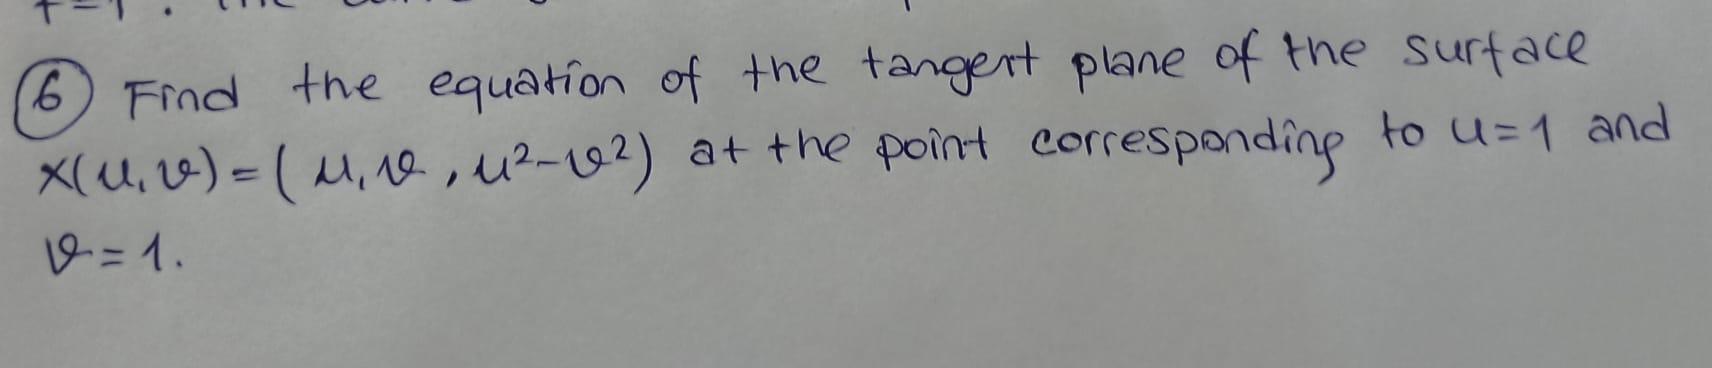 ⑥ Find the equation of the tangent plane of the surface
x(u,v)=(u,v,u²-v²) at the point corresponding to u=1 and
v=1.